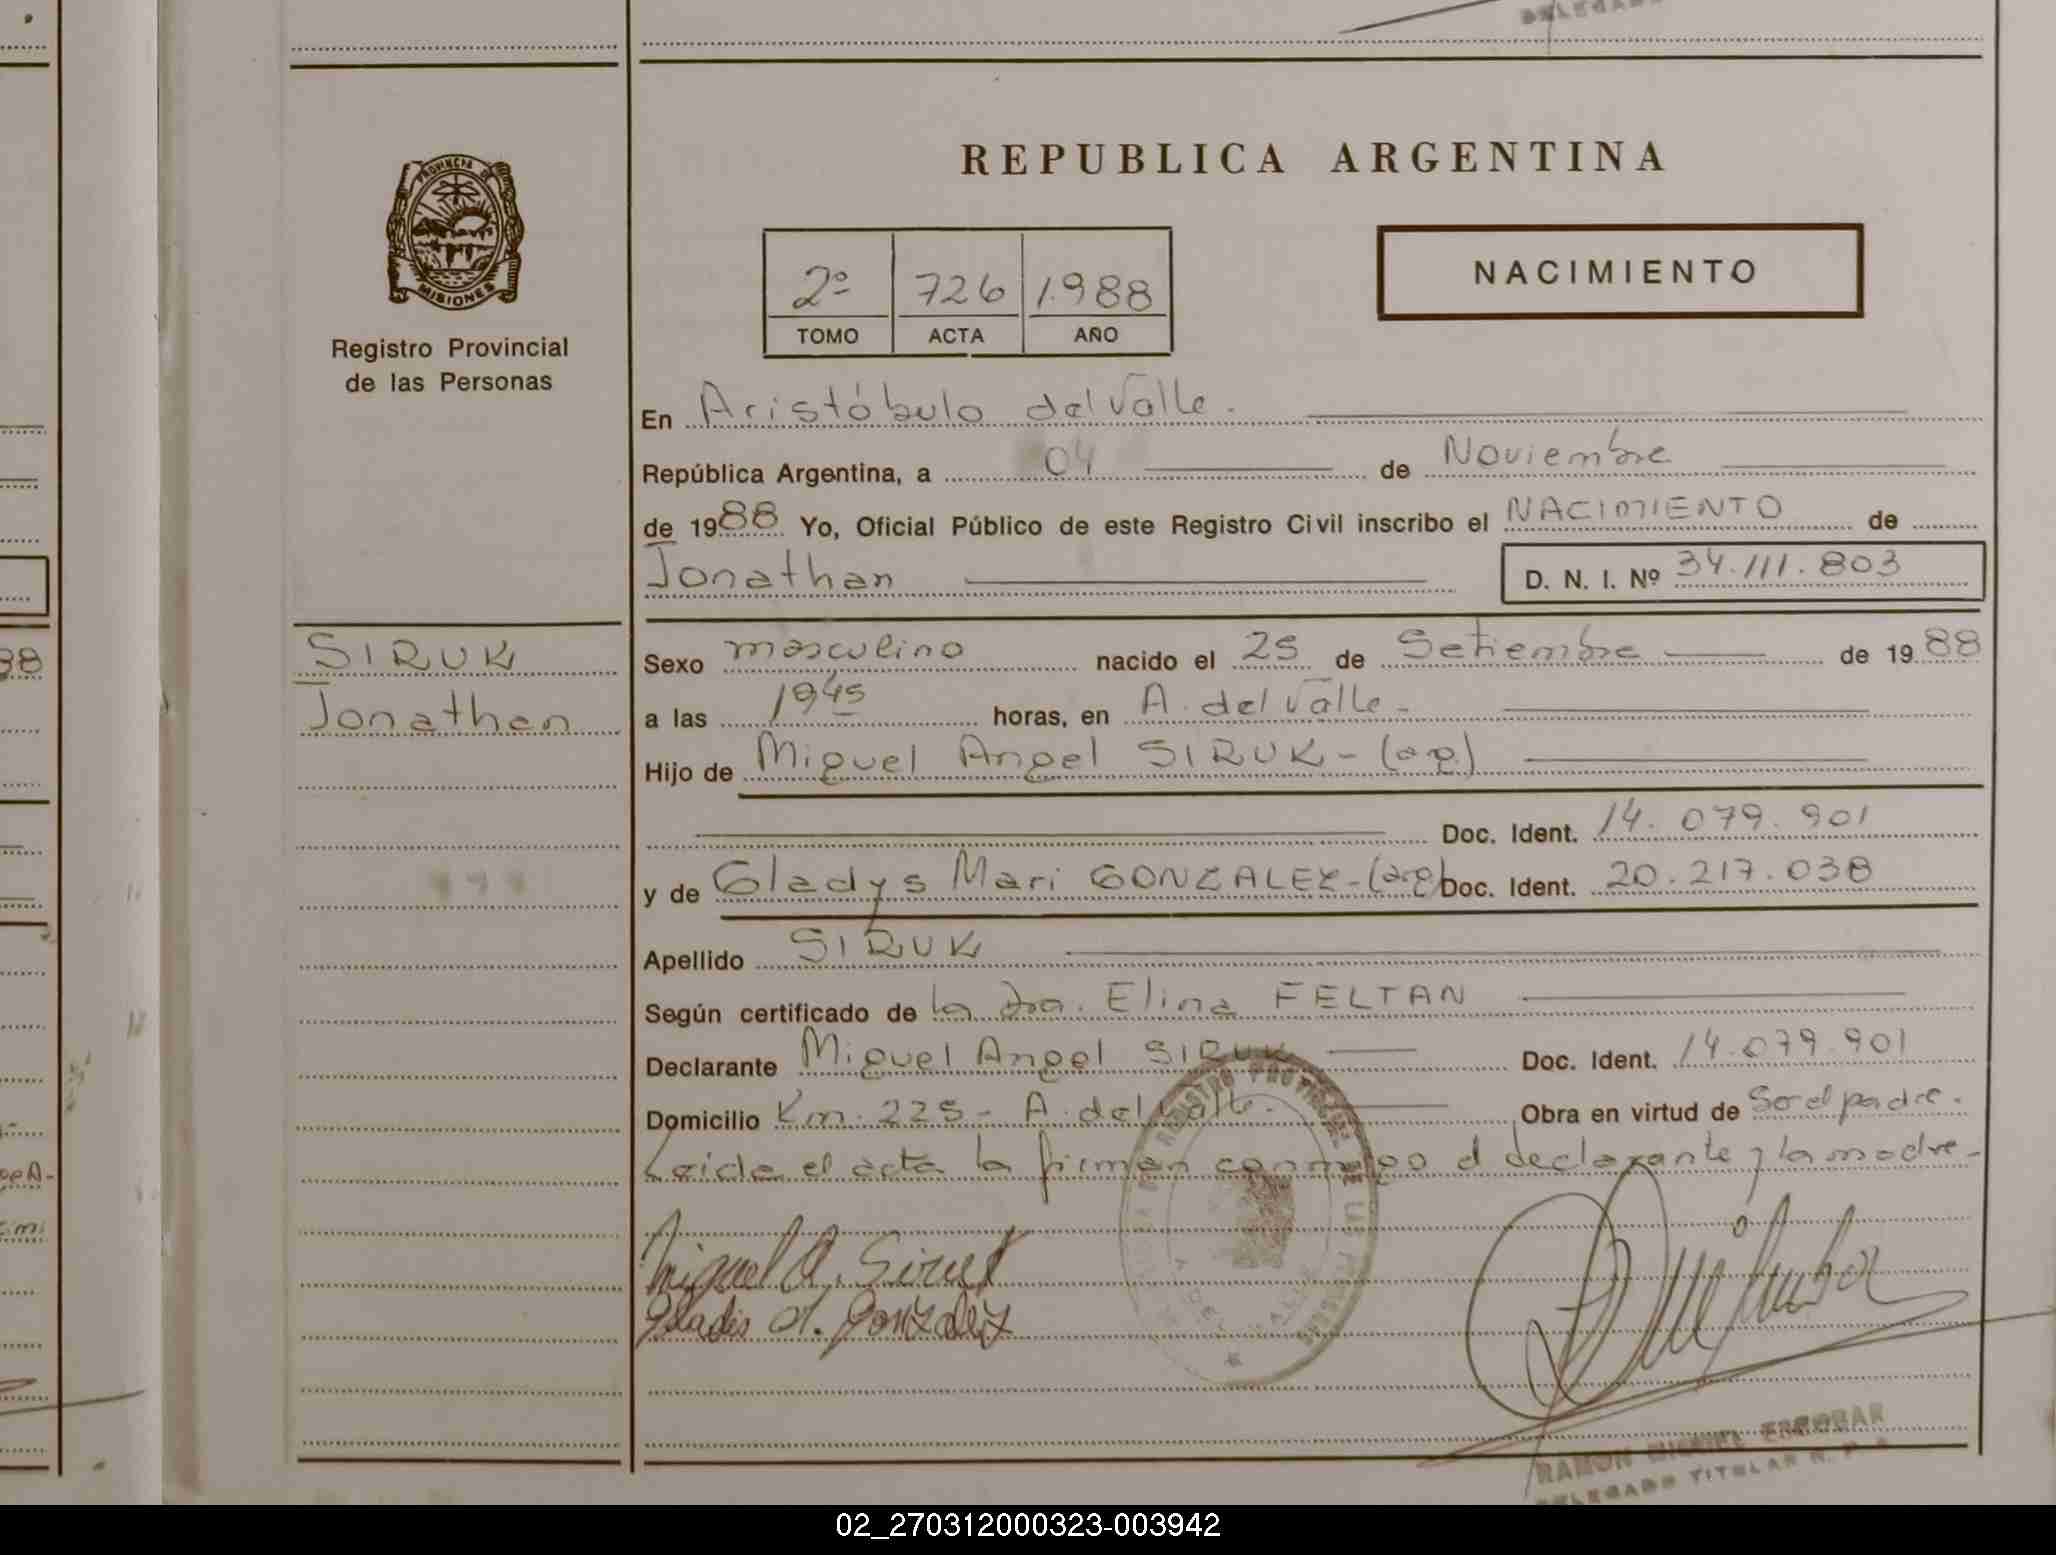 REPUBLICA ARGENTINA
PROVINCIA DE
MISIONES
Registro Provincial
de las Personas
2º 726 1.988
TOMO ACTA AÑO
NACIMIENTO
En Aristóbulo del Valle.
República Argentina, a 04 de Noviembre
de 1988 Yo, Oficial Público de este Registro Civil inscribo el NACIMIENTO de
Jonathan D. N. I. Nº 34.111.803
SIRUK
Jonathan
Sexo masculino nacido el 25 de Setiembre de 1988
a las 1945 horas, en A. del Valle.
Hijo de Miguel Angel SIRUK - (arg)
Doc. Ident. 14.079.901
y de Gladys Mari GONZALEZ - (arg) Doc. Ident. 20.217.038
Apellido SIRUK
Según certificado de la Dra. Elina FELTAN
Declarante Miguel Angel SIRUK Doc. Ident. 14.079.901
Domicilio Km. 225 - A. del Valle. Obra en virtud de Ser el padre.
Leida el acta la firman conmigo el declarante y la madre.
Miguel A. Siruk
Gladis M. Gonzalez
RAMON MIGUEL ESCOBAR
DELEGADO TITULAR R. P.
02_270312000323-003942